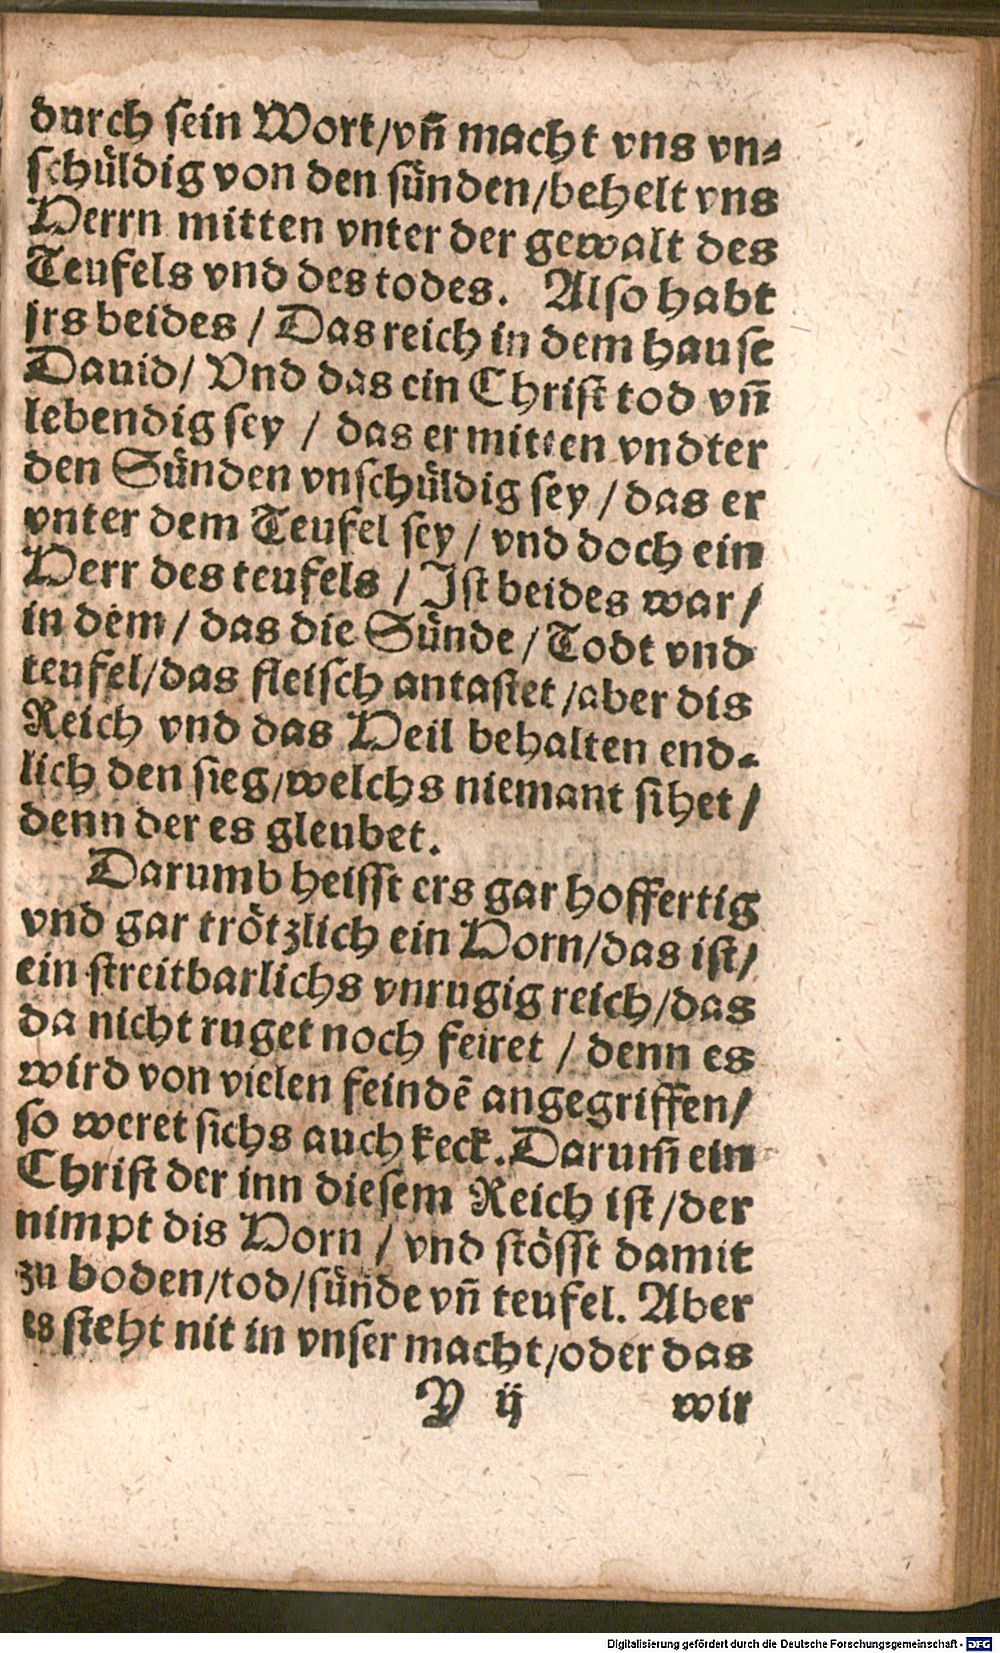 durch sein Wort/vn̄ macht vns vn⸗
schüldig von den sünden/behelt vns
Herrn mitten vnter der gewalt des
Teufels vnd des todes. Also habt
jrs beides / Das reich in dem hause
Dauid/ Vnd das ein Christ tod vn̄
lebendig sey / das er mitten vndter
den Sünden vnschüldig sey / das er
vnter dem Teufel sey / vnd doch ein
Herr des teufels / Ist beides war/
in dem / das die Sünde / Todt vnd
teufel/das fleisch antastet /aber dis
Reich vnd das Heil behalten end⸗
lich den sieg/welchs niemant sihet/
denn der es gleubet.
Darumb heisst ers gar hoffertig
vnd gar trötzlich ein Horn/das ist/
ein streitbarlichs vnrugig reich/das
da nicht ruget noch feiret / denn es
wird von vielen feindē angegriffen/
so weret sichs auch keck. Darum̄ ein
Christ der inn diesem Reich ist/der
nimpt dis Horn / vnd stösst damit
zu boden/tod/sünde vn̄ teufel. Aber
es steht nit in vnser macht/oder das
H ij wir
Digitalisierung gefördert durch die Deutsche Forschungsgemeinschaft - DFG